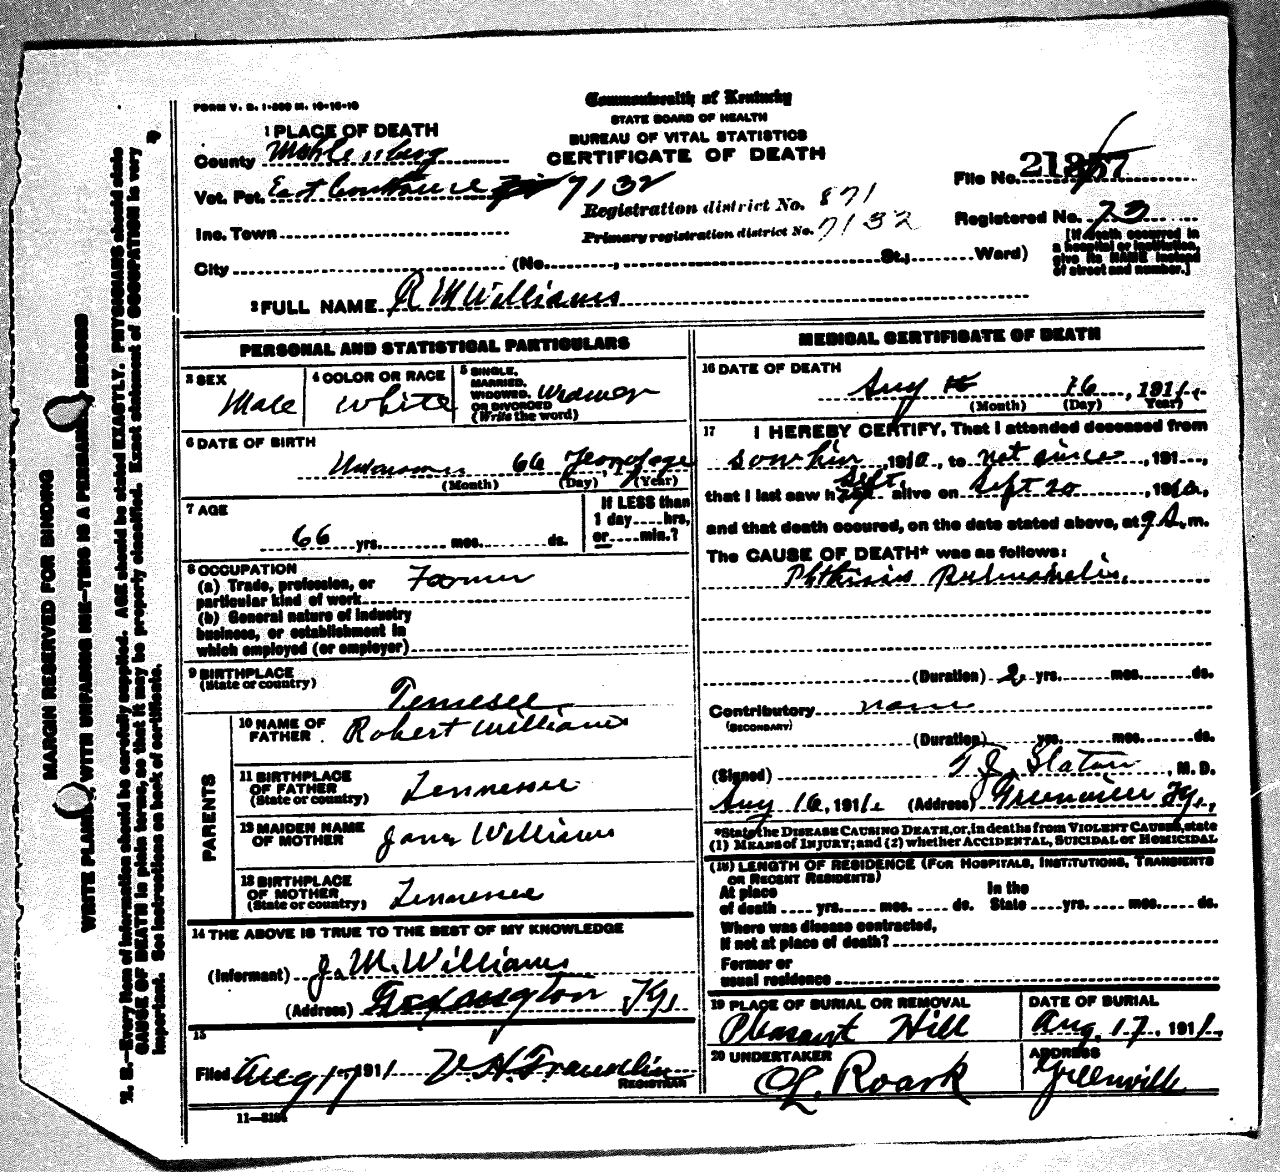 FORM V. S. 1-200 M. 10-10-10
Commonwealth of Kentucky
STATE BOARD OF HEALTH
BUREAU OF VITAL STATISTICS
CERTIFICATE OF DEATH
1 PLACE OF DEATH
County Muhlenburg
Vot. Pct. East 7132
Inc. Town
City (No. , St.; Ward)
Registration district No. 871
Primary registration district No. 7132
File No. 21857
Registered No. 73
[If death occurred in
a hospital or institution,
give its NAME instead
of street and number.]
2 FULL NAME R M Williams
PERSONAL AND STATISTICAL PARTICULARS
3 SEX
Male
4 COLOR OR RACE
White
5 SINGLE,
MARRIED,
WIDOWED,
OR DIVORCED
(Write the word)
Widower
6 DATE OF BIRTH
Unknown 66 Years of age
(Month) (Day) (Year)
7 AGE
66 yrs. mos. ds.
If LESS than
1 day....hrs,
or....min.?
8 OCCUPATION
(a) Trade, profession, or
particular kind of work Farmer
(b) General nature of industry
business, or establishment in
which employed (or employer)
9 BIRTHPLACE
(State or country)
Tennesee
PARENTS
10 NAME OF
FATHER
Robert Williams
11 BIRTHPLACE
OF FATHER
(State or country)
Tennessee
12 MAIDEN NAME
OF MOTHER
Jane Williams
13 BIRTHPLACE
OF MOTHER
(State or country)
Tennessee
14 THE ABOVE IS TRUE TO THE BEST OF MY KNOWLEDGE
(Informant) J. M. Williams
(Address) Ky.
15
Filed Aug 17 1911 V. H. Franklin
REGISTRAR
11—3184
MEDICAL CERTIFICATE OF DEATH
16 DATE OF DEATH
Aug 16, 1911
(Month) (Day) Year)
17 I HEREBY CERTIFY, That I attended deceased from
saw him, 1910, to not since, 191
that I last saw h alive on Sept 20, 1910,
and that death occured, on the date stated above, at 9 A. m.
The CAUSE OF DEATH* was as follows:
Phthisis Pulmonalis.
(Duration) 2 yrs. mos. ds.
Contributory none
(SECONDARY)
(Duration) yrs. mos. ds.
(Signed) T. J. Slaton, M. D.
Aug 16, 1911. (Address) Greenville Ky.,
*State the DISEASE CAUSING DEATH, or, in deaths from VIOLENT CAUSES, state
(1) MEANS of INJURY; and (2) whether ACCIDENTAL, SUICIDAL or HOMICIDAL
(18) LENGTH OF RESIDENCE (FOR HOSPITALS, INSTITUTIONS, TRANSIENTS
OR RECENT RESIDENTS)
At place In the
of death yrs. mos. ds. State yrs. mos. ds.
Where was disease contracted,
If not at place of death?
Former or
usual residence
19 PLACE OF BURIAL OR REMOVAL
Pleasant Hill
DATE OF BURIAL
Aug. 17, 1911.
20 UNDERTAKER
CL. Roark
ADDRESS
Greenville
MARGIN RESERVED FOR BINDING
WRITE PLAINLY, WITH UNFADING INK—THIS IS A PERMANENT RECORD
N. B.—Every item of information should be carefully supplied. AGE should be stated EXACTLY. PHYSICIANS should state
CAUSE OF DEATH in plain terms, so that it may be properly classified. Exact statement of OCCUPATION is very
important. See instructions on back of certificate.